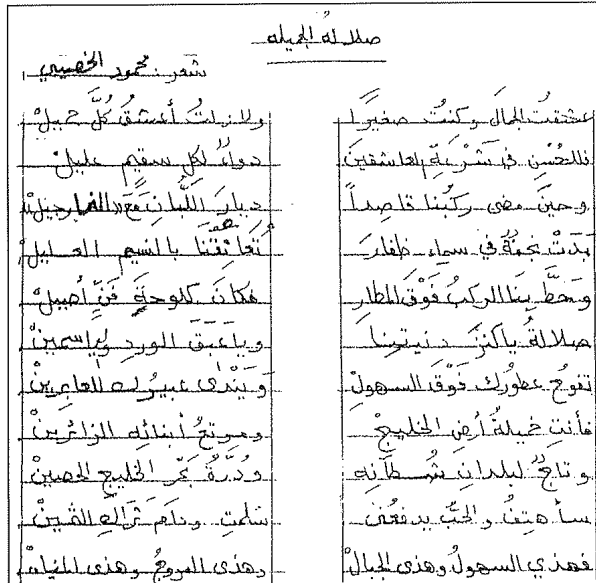 صلالة الجميلة
شعر: محمود الخصيبي
عشقتُ الجمالَ وكنتُ صغيرًا ولازلتُ أعشقُ كُلَّ جميلْ
فللحُسْنِ في شَرْعَةِ العاشقينَ دواءٌ لكل سقيمٍ عليلْ
وحينَ مضى ركبُنا قاصداً ديارَ اللُّبانِ مَعَ النارجيلْ
بَدَتْ نجمةٌ في سماءِ ظفارَ تُعانِقُنا بالنسيم العليلْ
وحَطَّ بِنا الركبُ فَوْقَ المطارِ فكانَ كلوحةِ فَنٍّ أصيلْ
صلالةُ ياكنزَ دنيتِنا وياعَبَقَ الوردِ والياسمينْ
تفوحُ عطورُك فَوْقَ السهولِ وَيَنْدَى عبيرُك للعابرينْ
فأنتِ خميلةُ أرضِ الخليجْ ومرتعُ أبنائِه الزائرينْ
وتاجٌ لبلدانِ شُطآنِه ودُرَّةُ بَحْرِ الخليج الحصينْ
سأهتفُ والحبُّ يدفعُني سَلِمْتِ ودامَ ثَراكِ الثمينْ
فهذي السهولُ وهذي الجبالْ وهذي المروجُ وهذي المياهْ